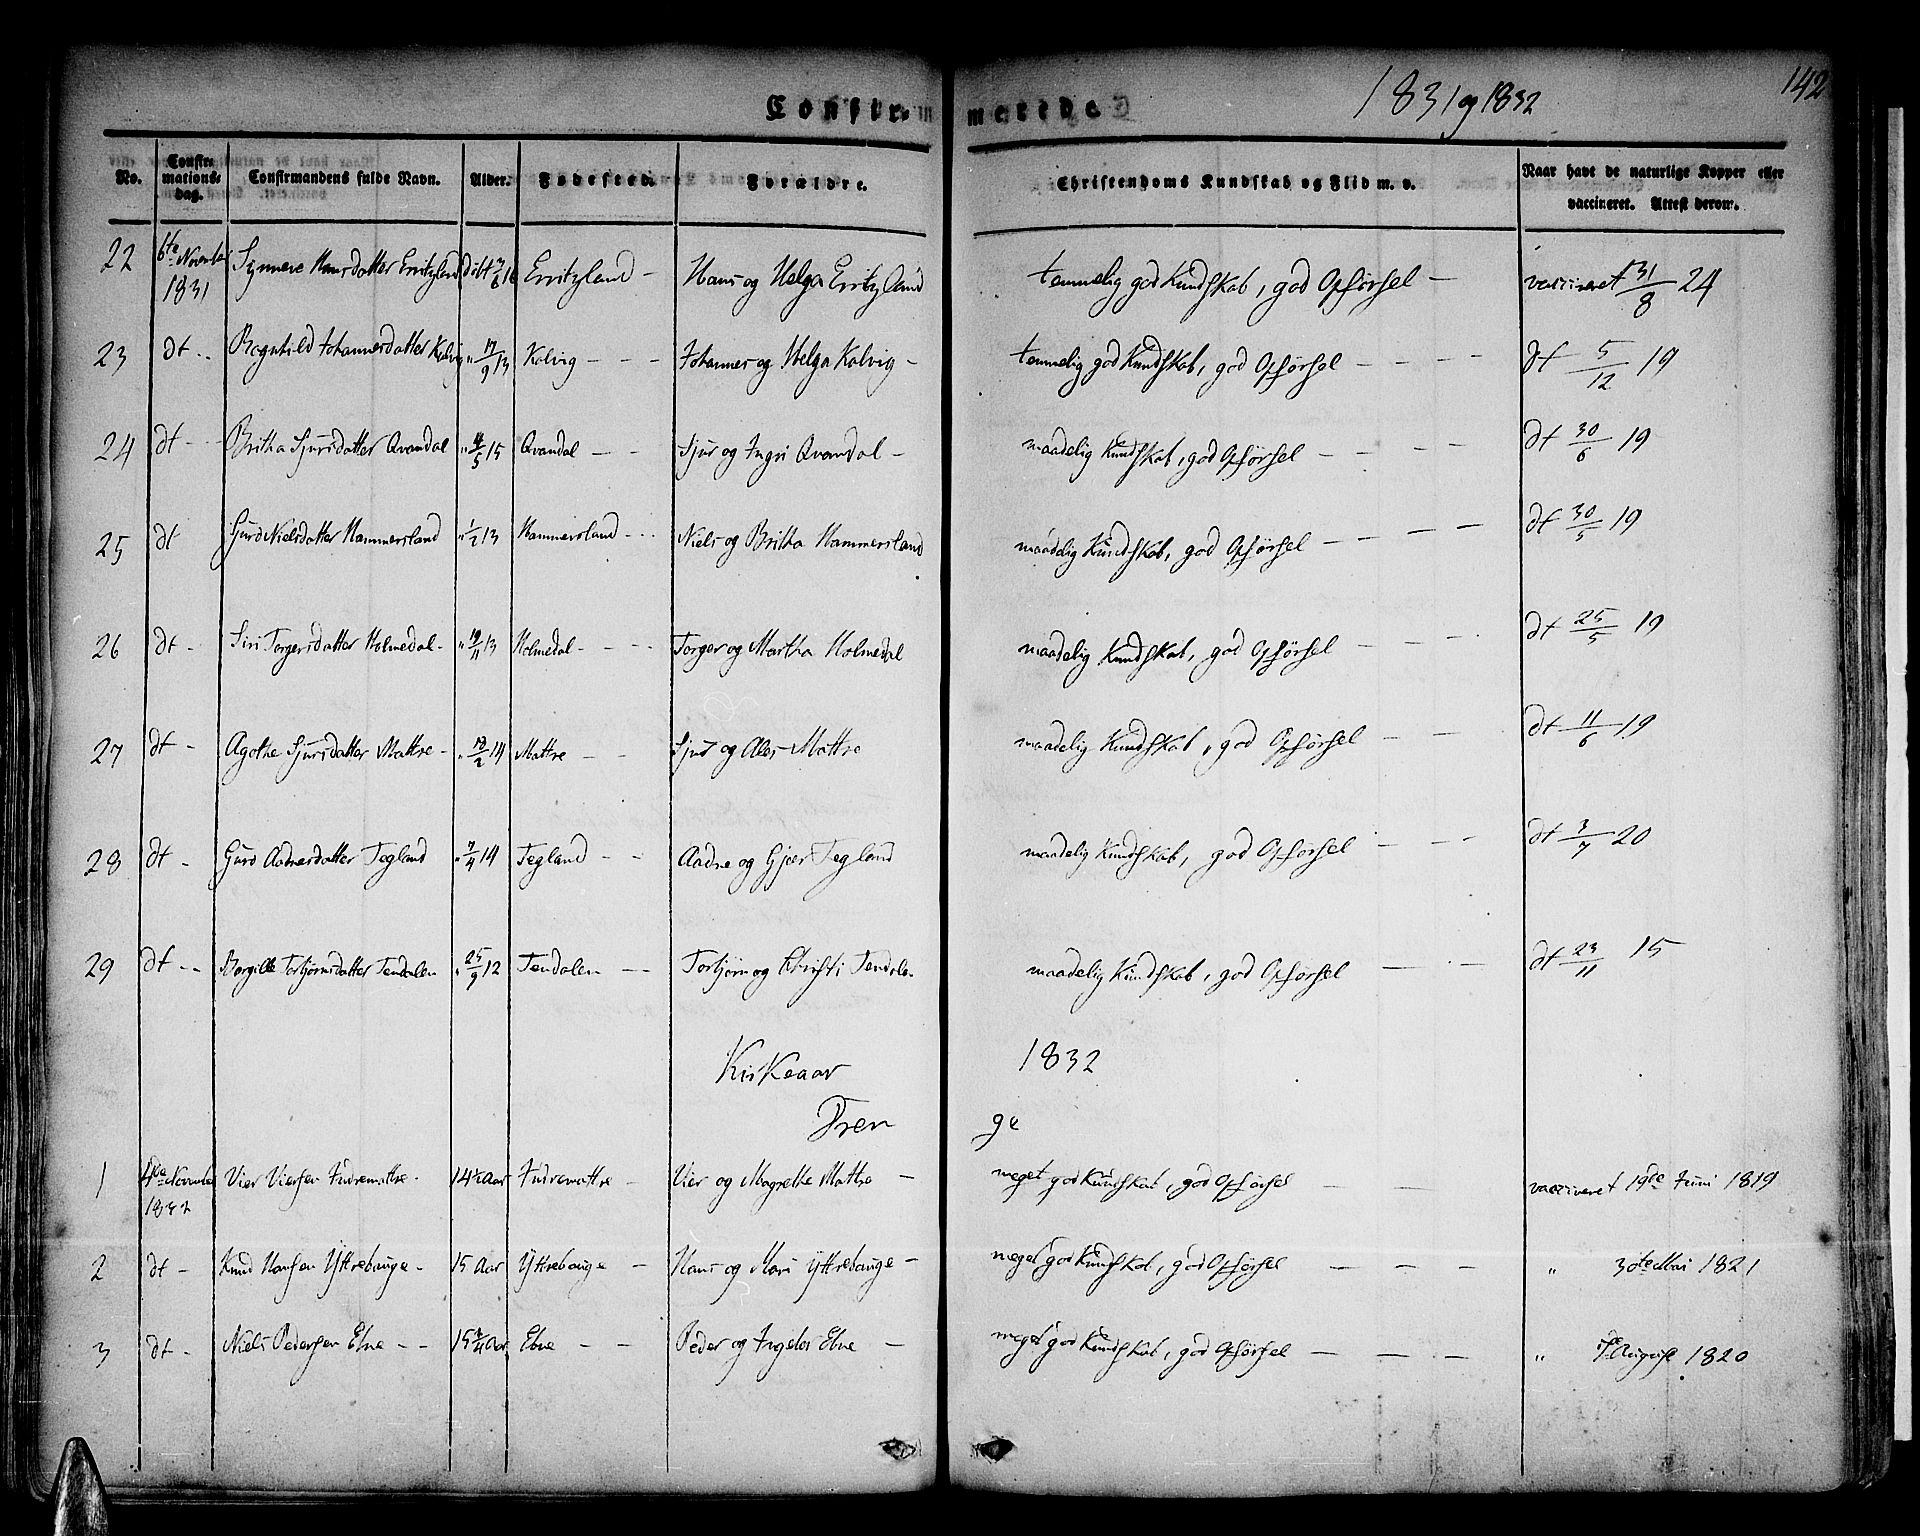 1831 og 1832
142
Confirmerede
No. Confirmationsdag. Confirmandens fulde Navn. Alder. Fødested. Forældre. Christendoms Kundskab og Flid m. v. Naar havt de naturlige Kopper eller vaccineret. Attest derom.
22 6te November 1831 Synneve Hansdatter Erritzland døbt 6 16 Erritzland - Hans og Helga Erritzland temmelig god Kundskab, god Opførsel - vaccineret 31/8 24
23 dt - Ragnhild Johannesdatter Kalvig " 17/9 13 Kalvig - - - Johannes og Helga Kalvig - temmelig god Kundskab, god Opførsel - - - - dt 5/12 19
24 dt - - Britha Sjursdatter Qvandal " 4/5 15 Qvandal - - Sjur og Ingri Qvandal - maadelig Kundskab, god Opførsel - - - - dt 30/6 19
25 dt Gurd Nielsdatter Hammersland " 1/2 13 Hammersland - - - Niels og Britha Hammersland maadelig Kundskab, god Opførsel - - - - dt 30/5 19
26 dt - Siri Torgersdatter Holmedal - " 19/11 13 Holmedal - - - Torger og Martha Holmedal maadelig Kundskab, god Opførsel - - - dt 25/5 19
27 dt - Agothe Sjursdatter Mattre - " 12/2 14 Mattre - - Sjur og Ales Mattre maadelig Kundskab, god Opførsel - - - dt 11/6 19
28 dt - Gurd Aadnesdatter Tegland " 7/4 14 Tegland - - Aadne og Gjøer Tegland maadelig Kundskab, god Opførsel - - - dt 3/7 20
29 dt - - Borgille Torbjørnsdatter Tendalen " 25/9 12 Tendalen - - Torbjørn og Christi Tendalen maadelig Kundskab, god Opførsel - - - dt 23/11 15
Kirkeaar 1832
Drenge
1 4de November 1832 Vier Viersen Indremattre - 14½ Aar Indremattre - Vier og Magrethe Mattre - meget god Kundskab, god Opførsel - - vaccineret 19de Juni 1819
2 dt - Knud Hansen Yttrebauge - 15 Aar Yttrebauge - Hans og Mari Yttrebauge - meget god Kundskab, god Opførsel - - - " 30te Mai 1821
3 dt - Niels Pedersen Ebne - - 15¾ Aar Ebne - - Peder og Ingebor Ebne - meget god Kundskab, god Opførsel - - - " August 1820